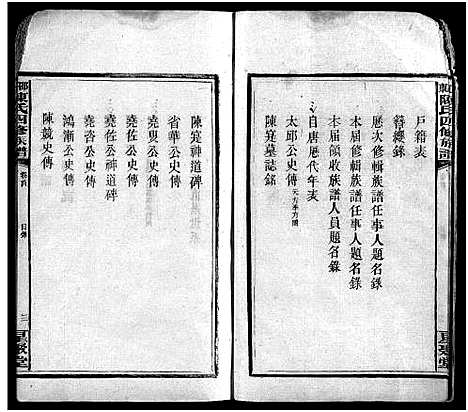 戶籍表
簪纓錄
歷次修輯族譜任事人題名錄
本屆修輯族譜任事人題名錄
本屆領收族譜人員題名錄
自唐歷代年表
太邱公史傳 元方季方附
陳寔墓誌銘
陳寔神道碑
省華公史傳
堯佐公史傳
堯佐公神道碑
堯咨公史傳
鴻漸公史傳
陳兢史傳
陳氏四修族譜
卷首
目錄
三